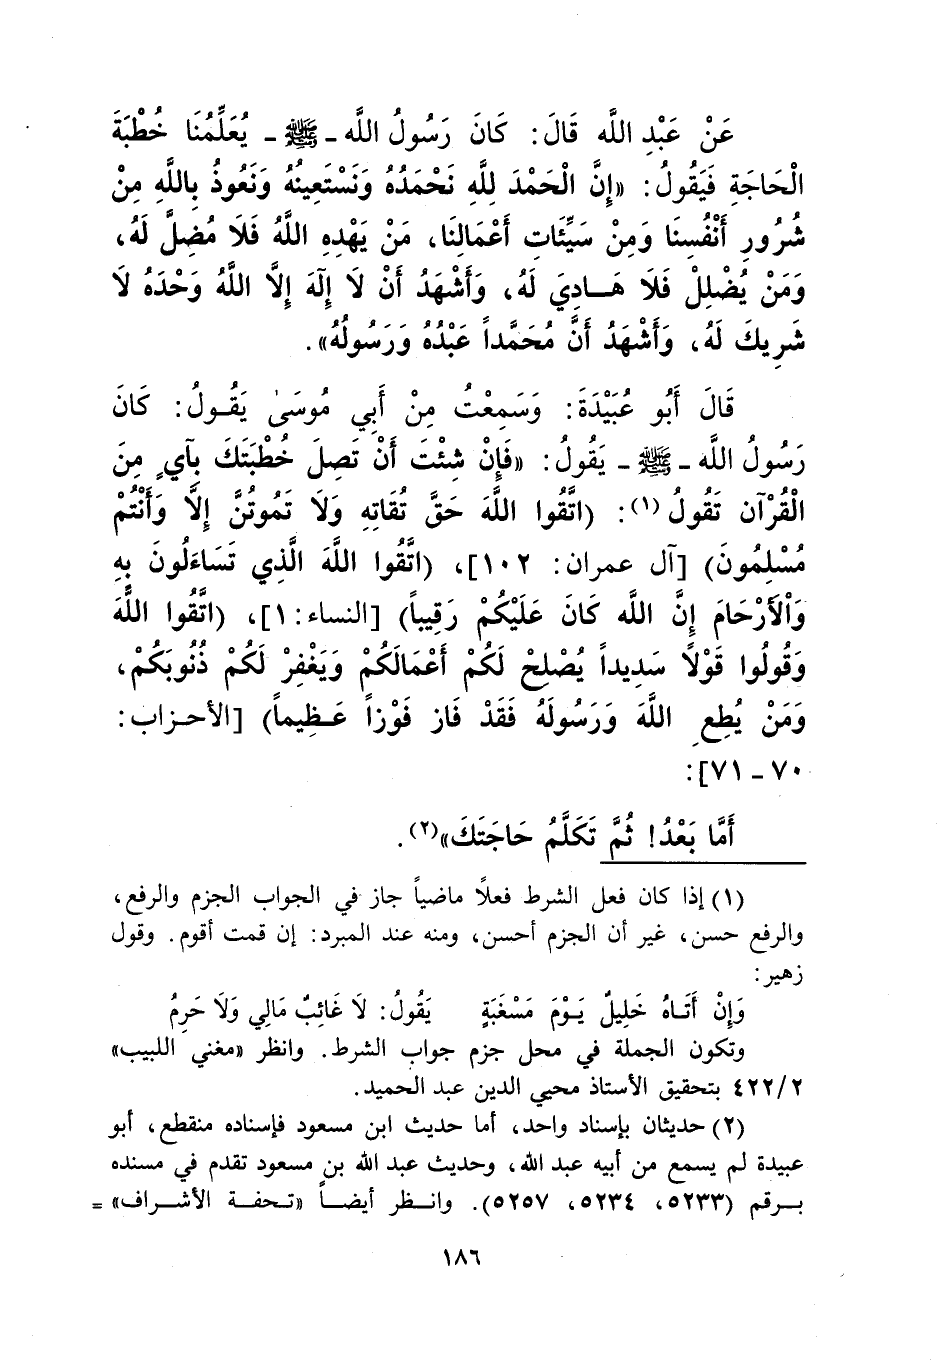 عَنْ عَبْدِ اللَّه قَالَ: كَانَ رَسُولُ اللَّه ـ ﷺ ـ يُعَلِّمُنَا خُطْبَةَ
الْحَاجَةِ فَيَقُولُ: «إِنَّ الْحَمْدَ لِلَّهِ نَحْمَدُهُ وَنَسْتَعِينُهُ وَنَعُوذُ بِاللَّهِ مِنْ
شُرُورِ أَنْفُسِنَا وَمِنْ سَيِّئَاتِ أَعْمَالِنَا، مَنْ يَهْدِهِ اللَّهُ فَلَا مُضِلَّ لَهُ،
وَمَنْ يُضْلِلْ فَلَا هَـادِيَ لَهُ، وَأَشْهَدُ أَنْ لَا إِلَهَ إِلَّا اللَّهُ وَحْدَهُ لَا
شَرِيكَ لَهُ، وَأَشْهَدُ أَنَّ مُحَمَّداً عَبْدُهُ وَرَسُولُهُ».
قَالَ أَبُو عُبَيْدَةَ: وَسَمِعْتُ مِنْ أَبِي مُوسَىٰ يَقُـولُ: كَانَ
رَسُولُ اللَّه ـ ﷺ ـ يَقُولُ: «فَإِنْ شِئْتَ أَنْ تَصِلَ خُطْبَتَكَ بِآيٍ مِنَ
الْقُرْآنِ تَقُولُ(١): (اتَّقُوا اللَّهَ حَقَّ تُقَاتِهِ وَلَا تَمُوتُنَّ إِلَّا وَأَنْتُمْ
مُسْلِمُونَ) [آل عمران: ١٠٢]، (اتَّقُوا اللَّهَ الَّذِي تَسَاءَلُونَ بِهِ
وَالْأَرْحَامَ إِنَّ اللَّه كَانَ عَلَيْكُمْ رَقِيباً) [النساء: ١]، (اتَّقُوا اللَّهَ
وَقُولُوا قَوْلًا سَدِيداً يُصْلِحْ لَكُمْ أَعْمَالَكُمْ وَيَغْفِرْ لَكُمْ ذُنُوبَكُمْ،
وَمَنْ يُطِعِ اللَّهَ وَرَسُولَهُ فَقَدْ فَازَ فَوْزاً عَـظِيماً) [الأحـزاب:
٧٠ ـ ٧١]:
أَمَّا بَعْدُ! ثُمَّ تَكَلَّمُ حَاجَتَكَ»(٢).
(١) إذا كان فعل الشرط فعلًا ماضياً جاز في الجواب الجزم والرفع،
والرفع حسن، غير أن الجزم أحسن، ومنه عند المبرد: إن قمت أقوم. وقول
زهير:
وَإِنْ أَتَـاهُ خَلِيلٌ يَـوْمَ مَسْغَبَةٍ يَقُولُ: لَا غَائِبٌ مَالِي وَلَا حَرِمُ
وتكون الجملة في محل جزم جواب الشرط. وانظر «مغني اللبيب»
٤٢٢/٢ بتحقيق الأستاذ محيي الدين عبد الحميد.
(٢) حديثان بإسناد واحد، أما حديث ابن مسعود فإسناده منقطع، أبو
عبيدة لم يسمع من أبيه عبد الله، وحديث عبد الله بن مسعود تقدم في مسنده
بـرقم (٥٢٣٣، ٥٢٣٤، ٥٢٥٧). وانـظر أيضـاً «تـحفـة الأشـراف» =
١٨٦